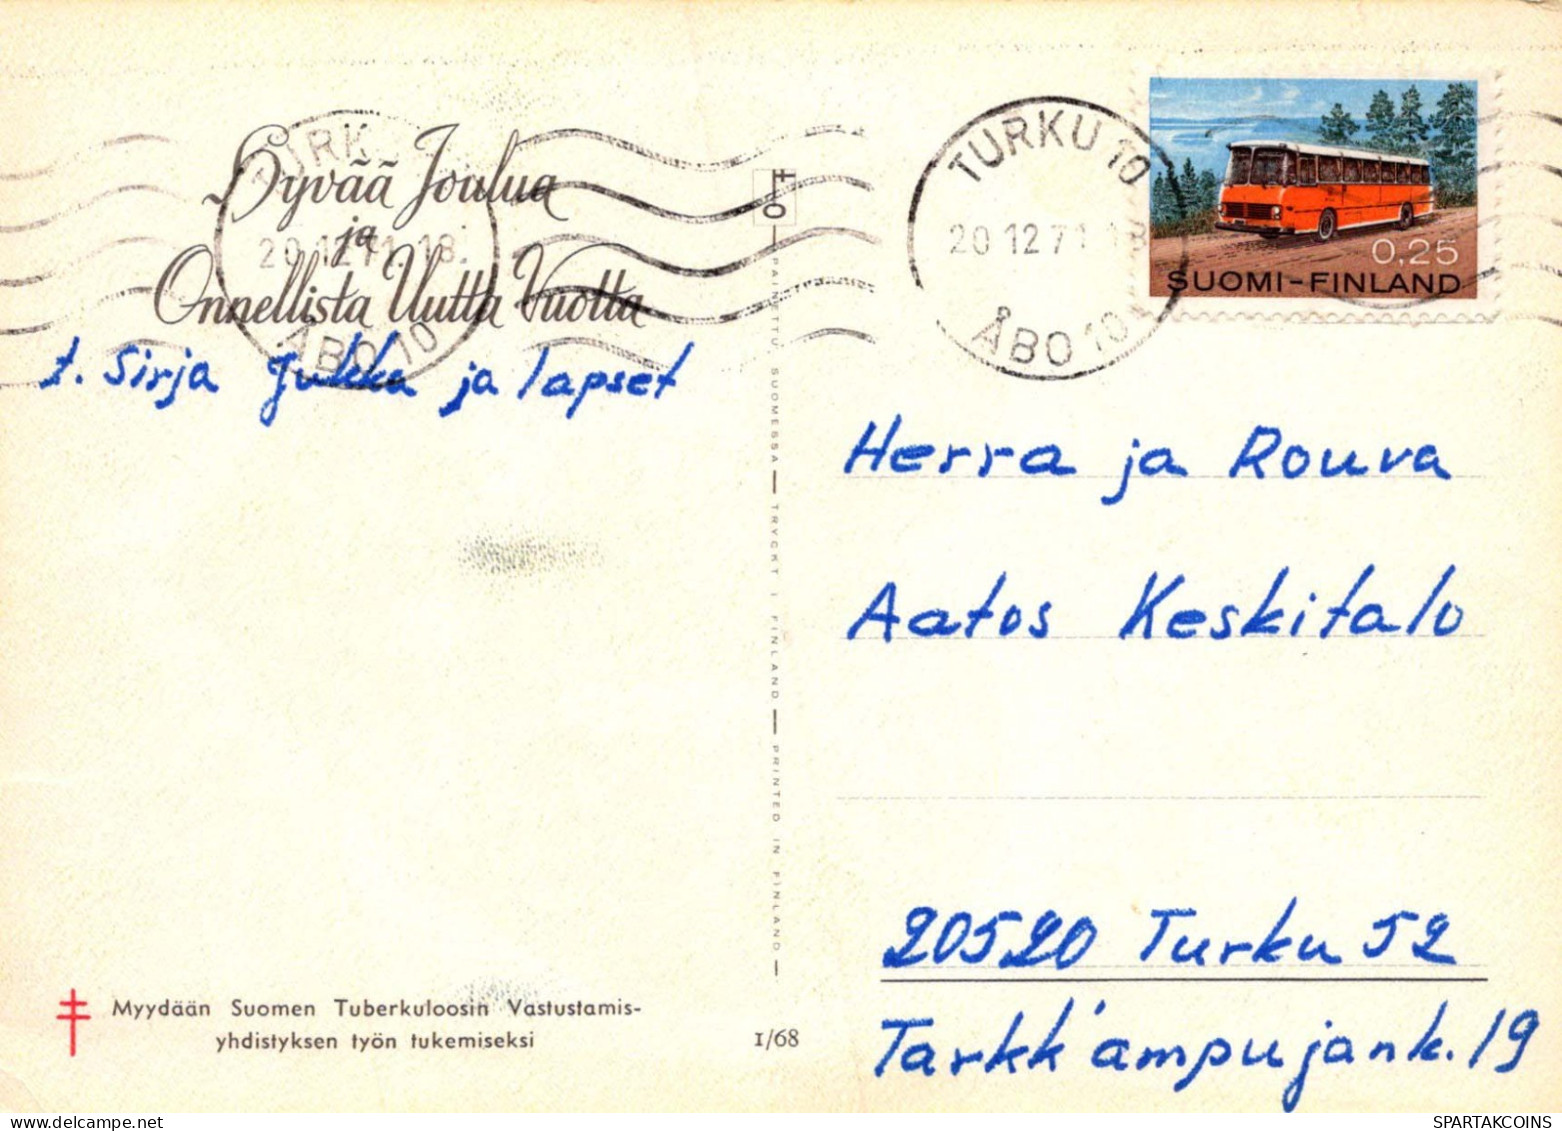 TURKU 10
20.12.71.18
ÅBO 10
0,25
SUOMI-FINLAND
TURK
20.12.71.18.
ÅBO 10
Hyvää Joulua
ja
Onnellista Uutta Vuotta
t. Sirja Jukka ja lapset
Herra ja Rouva
Aatos Keskitalo
20520 Turku 52
Tarkk'ampujank. 19
PAINETTU SUOMESSA — TRYCKT I FINLAND — PRINTED IN FINLAND —
Myydään Suomen Tuberkuloosin Vastustamis-
yhdistyksen työn tukemiseksi
1/68
SPARTAKCOINS